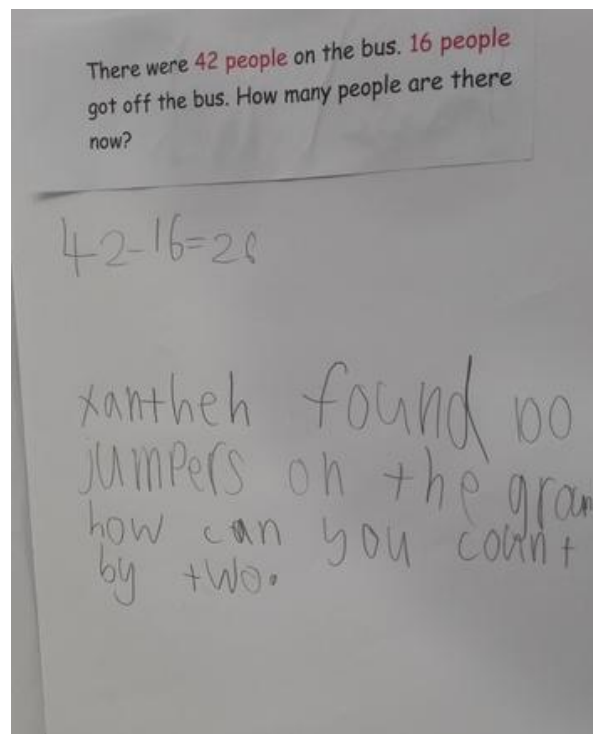 There were 42 people on the bus. 16 people
got off the bus. How many people are there
now?
42-16=26
xantheh found 100
jumpers on the groun
how can you count
by two.